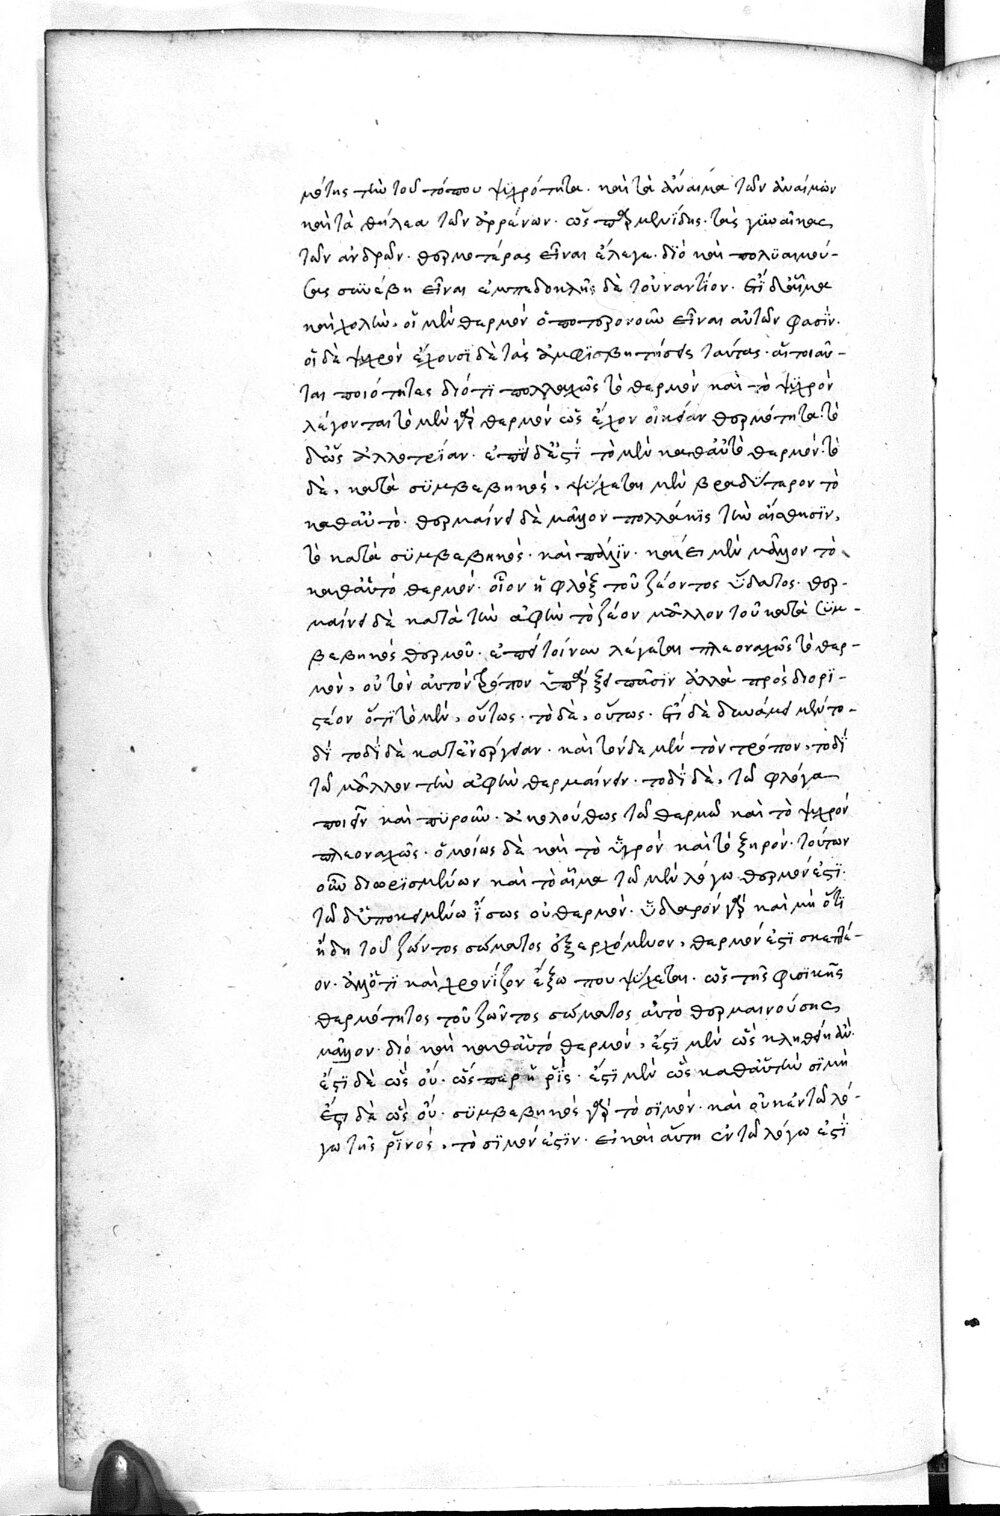 μότης τὴν τοῦ τόπου ψυχρότητα· καὶ τὰ ἄναιμα τῶν ἀναίμων
καὶ τὰ θήλεα τῶν ἀρρένων· ὡς παρμενίδης· τὰς γυναῖκας
τῶν ἀνδρῶν· θερμοτέρας εἶναι ἔλεγε· διὸ καὶ πολϋαιμού-
σας συνέβη εἶναι ἐμπεδοκλῆς δὲ τοὐναντίον· ἔτι δ' αἷμα
καὶ χολὴν, οἱ μὲν θερμὸν ὁποτερονοῦν εἶναι αὐτῶν φασΐν·
οἱ δὲ ψυχρὸν ἔχουσϊ δὲ τὰς ἀμφισβητήσεις ταύτας· αἱ τοιαῦ-
ται ποιότητες διότϊ πολλαχῶς τὸ θερμὸν καὶ τὸ ψυχρὸν
λέγονται τὸ μὲν γὰρ θερμὸν ὡς ἔχον οἰκείαν θερμότητα· τὸ
δ' ὡς ἀλλοτρίαν· ἐπεὶ δ' ἐστϊ τὸ μὲν καθ' αὑτὸ θερμὸν· τὸ
δὲ, κατὰ σϋμβεβηκός, ψύχεται μὲν βραδύτερον τὸ
καθ' αὑτὸ· θερμαίνει δὲ μᾶλλον πολλάκις τὴν αἴσθησϊν,
τὸ κατὰ σϋμβεβηκὸς· καὶ πάλϊν· καίει μὲν μᾶλλον τὸ
καθ' αὑτὸ θερμὸν· οἷον ἡ φλὸξ τοῦ ζέοντος ὕδατος· θερ-
μαίνει δὲ κατὰ τὴν ἁφὴν τὸ ζέον μᾶλλον τοῦ κατὰ σϋμ-
βεβηκὸς θερμοῦ· ἐπεὶ τοίνυν λέγεται πλεοναχῶς τὸ θερ-
μόν, οὐ τὸν αὐτὸν τρόπον ὑπάρξει πᾶσϊν ἀλλὰ προσδιορι-
στέον ὅτι τὸ μὲν, οὕτως· τὸ δὲ, οὕτως· ἔτι δὲ δυνάμει μὲν το-
δὶ τοδὶ δὲ κατ' ἐνέργειαν· καὶ τόνδε μὲν τὸν τρόπον, τοδὶ
τῶ μᾶλλον τὴν ἁφὴν θερμαίνειν· τοδὶ δὲ, τῶ φλόγα
ποιεῖν καὶ πϋροῦν· ἀκολούθως τῶ θερμῶ καὶ τὸ ψυχρὸν
πλεοναχῶς· ὁμοίως δὲ καὶ τὸ ὑγρὸν καὶ τὸ ξηρὸν· τούτων
οὖν διωρισμένων καὶ τὸ αἷμα τῶ μὲν λόγω θερμόν ἐστϊ·
τῶ δ' ὑποκειμένω ἴσως οὐ θερμὸν· ὑδαρὸν γὰρ καὶ μὴ ὅτϊ
ἤδη τοῦ ζῶντος σώματος ἐξερχόμενον, θερμόν ἐστϊ σκεπτέ-
ον· ἀλλ' ὅτϊ καὶ χρονίζον ἔξω που ψύχεται· ὡς τῆς φυσικῆς
θερμότητος τοῦ ζῶντος σώματος αὐτὸ θερμαινούσης
μᾶλλον· διὸ καὶ καθ' αὑτὸ θερμὸν, ἐστϊ μὲν ὡς κληθείη ἂν·
ἐστϊ δὲ ὡς οὔ· ὥσπερ ἡ ῥὶς· ἐστϊ μὲν ὡς καθ' αὑτὴν σϊμὴ
ἐστι δὲ ὡς οὔ· σϋμβεβηκὸς γὰρ τὸ σϊμὸν· καὶ οὐκ ἐν τῶ λό-
γω τῆς ῥινὸς, τὸ σϊμὸν ἐστϊν· εἰ καὶ αὕτη ἐν τῶ λόγω ἐστϊ